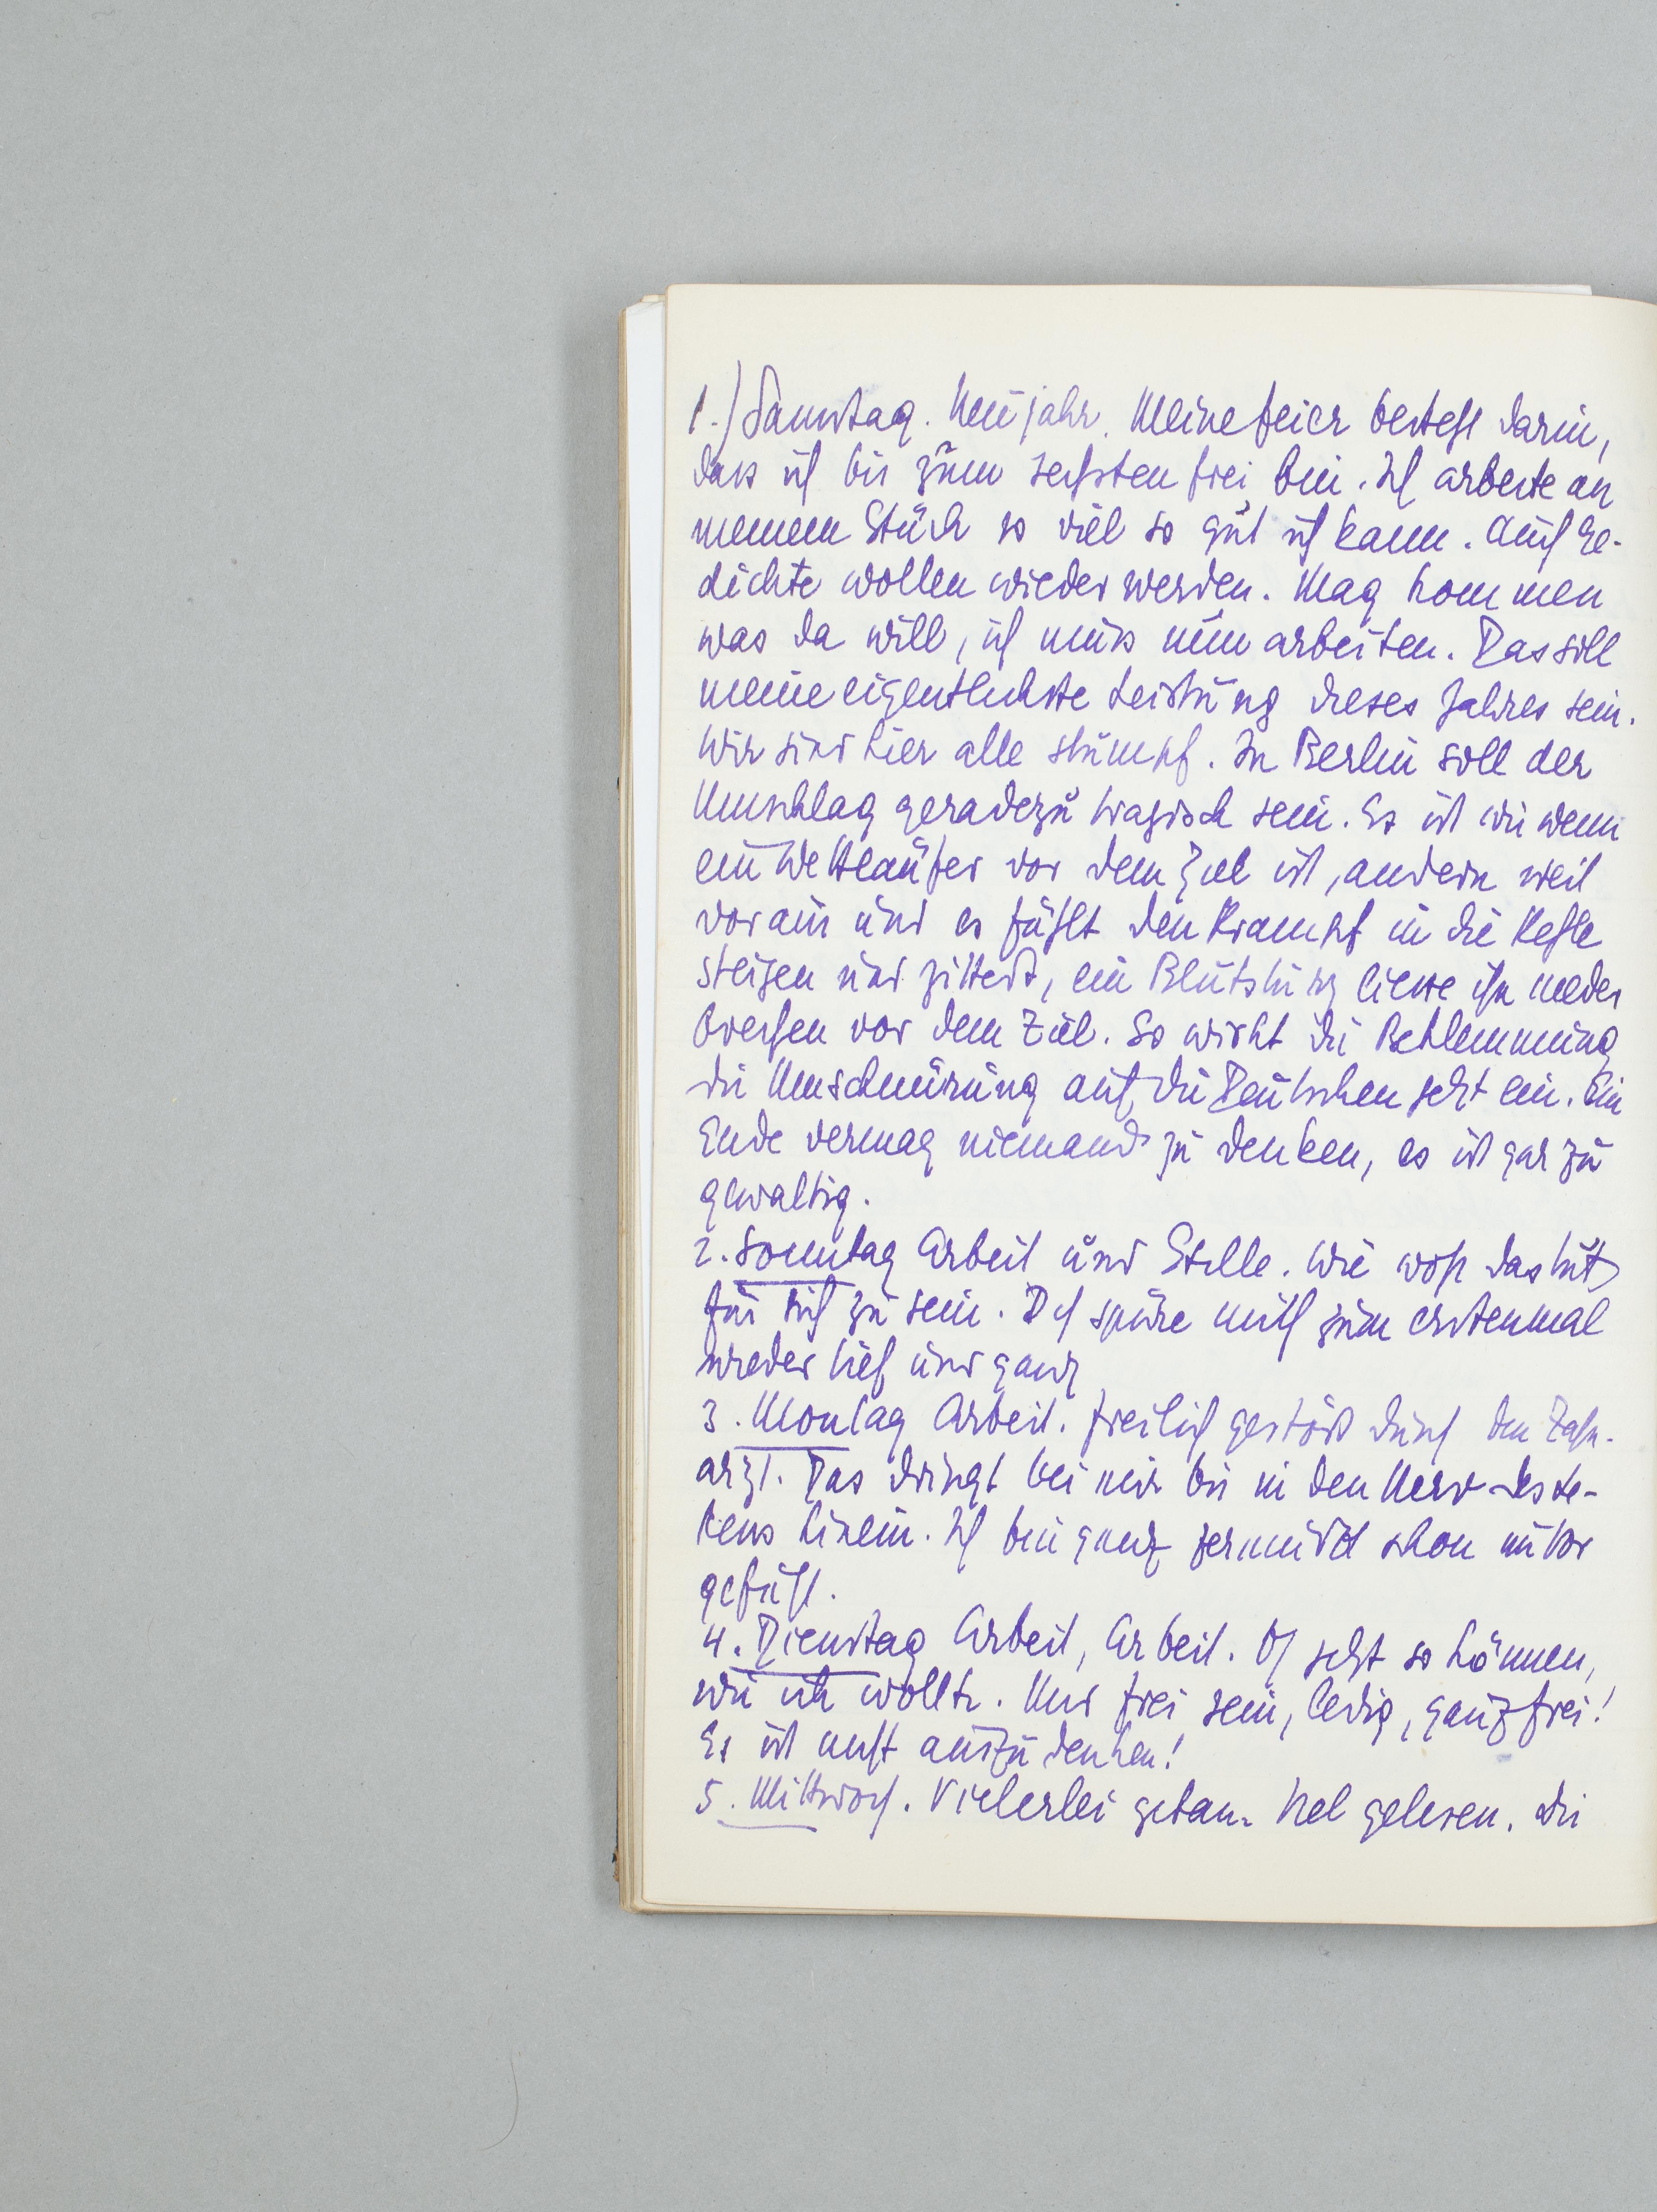 1.) Samstag. Neujahr. Meine Feier besteht darin,
dass ich bis zum sechsten frei bin. Ich arbeite an
meinem Stück so viel so gut ich kann. Auch Ge-
dichte wollen wieder werden. Mag kommen
was da will, ich muss nun arbeiten. Das soll
meine eigentlichste Leistung dieses Jahres sein.
Wir sind hier alle stumpf. In Berlin soll der
Umschlag geradezu tragisch sein. Es ist wie wenn
ein Wettläufer vor dem Ziel ist, andern weit
voraus und es fühlt den Krampf in die Kehle
steigen und zittert, ein Blutsturz liesse ihn nieder
brechen vor dem Ziel. So wirkt die Beklemmung
die Umschnürung auf die Deutschen jetzt ein. Ein
Ende vermag niemand zu denken, es ist gar zu
gewaltig.
2. Sonntag Arbeit und Stille. Wie wohl das tut
für sich zu sein. Ich spüre mich zum erstenmal
wieder tief und ganz
3. Montag Arbeit. Freilich gestört durch den Zahn-
arzt. Das dringt bei mir bis in den Nerv des Le-
bens hinein. Ich bin ganz zermürbt schon im Vor
gefühl.
4. Dienstag Arbeit, Arbeit. O jetzt so können,
wie ich wollte. Nur frei sein, ledig, ganz frei!
Es ist nicht auszudenken!
5. Mittwoch. Vielerlei getan. Viel gelesen. Die